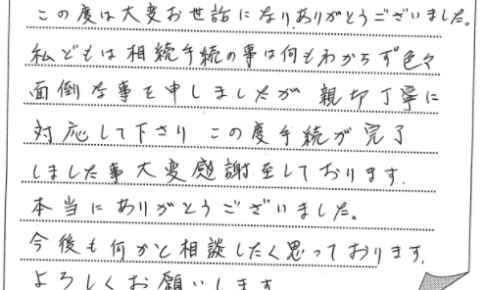 この度は大変お世話になり、ありがとうございました。
私どもは相続手続の事は何もわからず色々
面倒な事を申しましたが 親切丁寧に
対応して下さり この度手続が完了
しました事大変感謝至しております。
本当にありがとうございました。
今後も何かと相談したく思っております。
よろしくお願いします